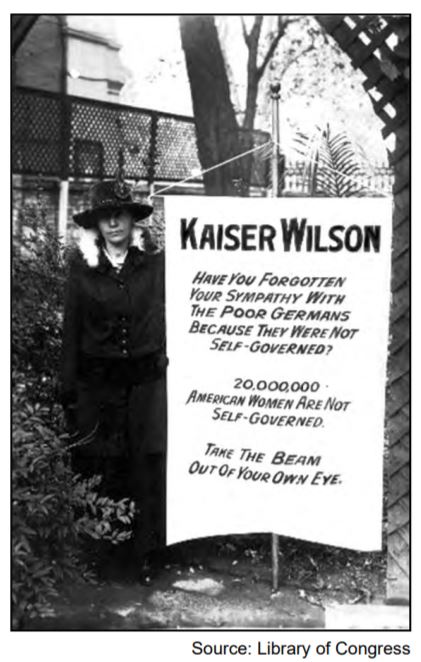 KAISER WILSON
HAVE YOU FORGOTTEN
YOUR SYMPATHY WITH
THE POOR GERMANS
BECAUSE THEY WERE NOT
SELF-GOVERNED?
20,000,000
AMERICAN WOMEN ARE NOT
SELF-GOVERNED.
TAKE THE BEAM
OUT OF YOUR OWN EYE.
Source: Library of Congress